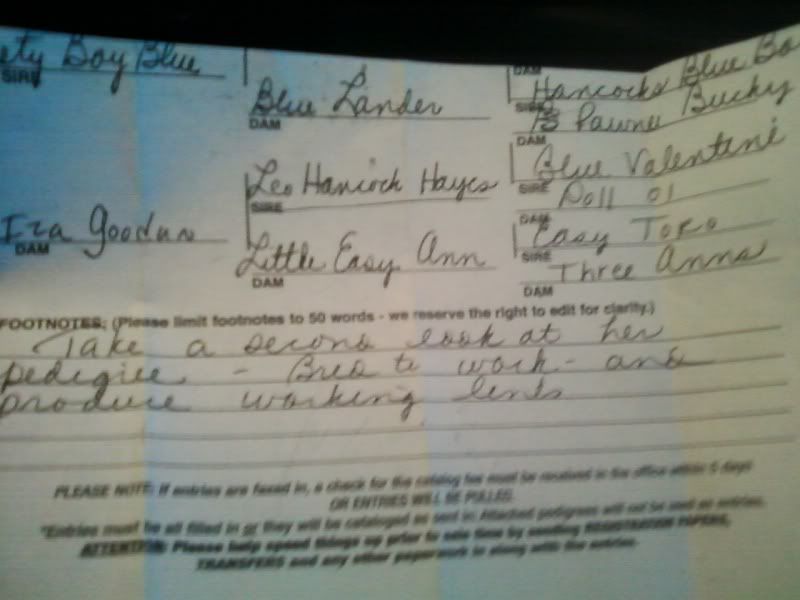 ety Boy Blue
SIRE
Blue Lander
DAM
DAM
Hancocks Blue Bo
SIRE
Bs Pawnee Bucky
DAM
Leo Hancock Hayes
SIRE
Blue Valentine
SIRE
Doll 01
DAM
Iza Goodun
DAM
Little Easy Ann
DAM
Easy Toro
SIRE
Three Anns
DAM
FOOTNOTES: (Please limit footnotes to 50 words - we reserve the right to edit for clarity.)
Take a second look at her
pedigree - Bred to work - and
produce working
PLEASE NOTE: If entries are faxed in, a check for the catalog fee must be received in the office within 5 days
OR ENTRIES WILL BE PULLED.
*Entries must be all filled in or they will be cataloged as sent in. Attached pedigrees will not be used as entries.
ATTENTION: Please help speed things up prior to sale time by sending REGISTRATION PAPERS,
TRANSFERS and any other paperwork in along with the entries.